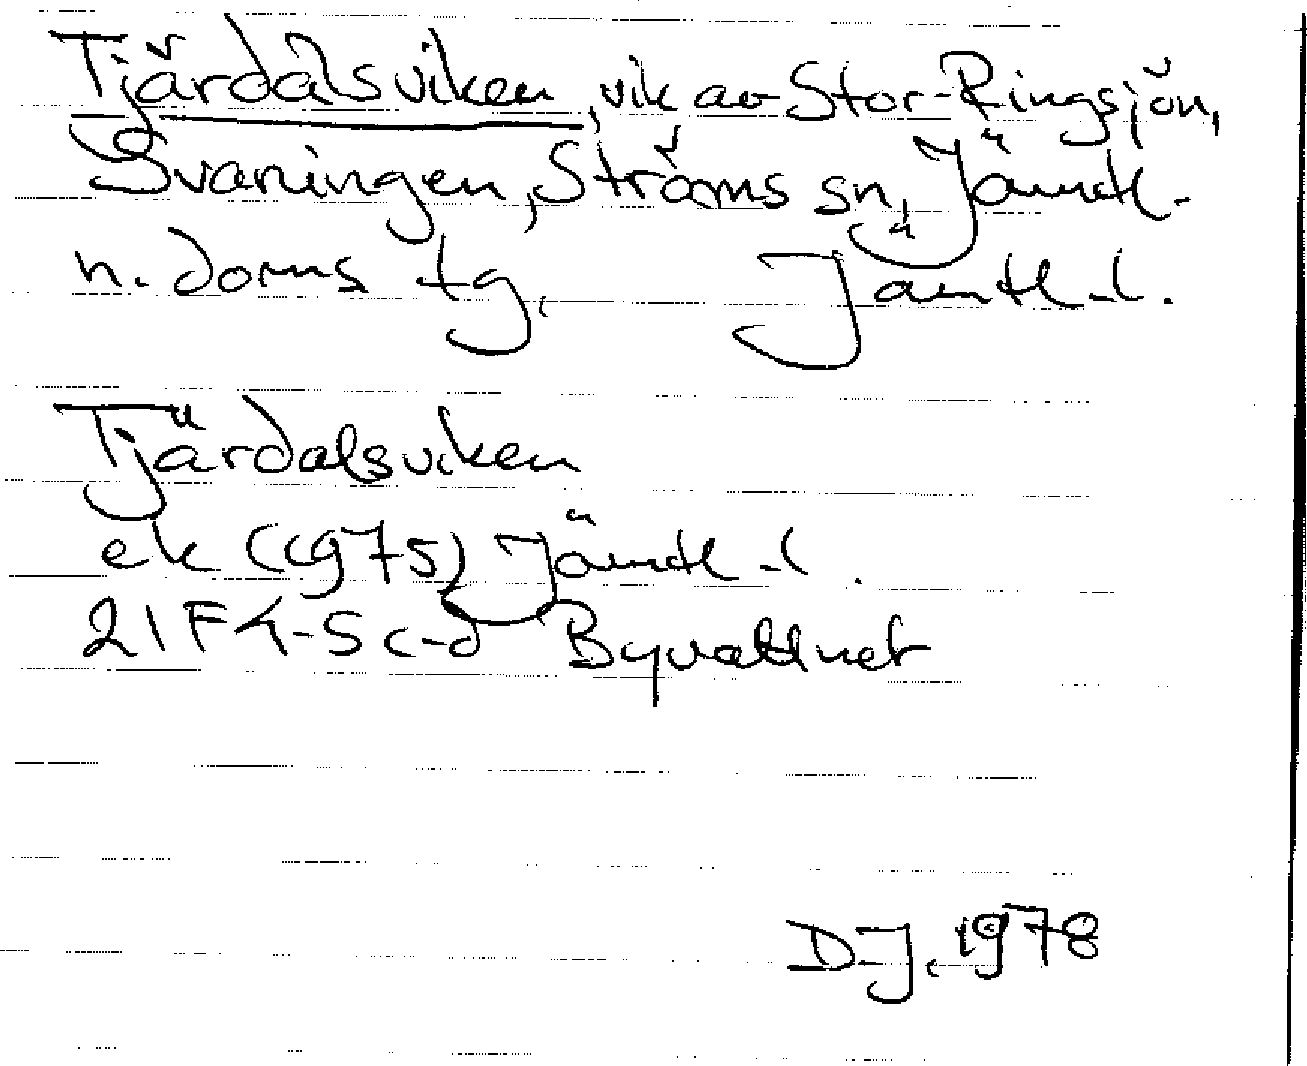 Tjärdalsviken, vik av Stor-Ringsjön,
Svaningen, Ströms sn, Jämtl.
n. doms tg. Jämtl. l.
Tjärdalsviken
ek (1975) Jämtl. l.
21F 4-5 c-d Byvattnet
DJ. 1978